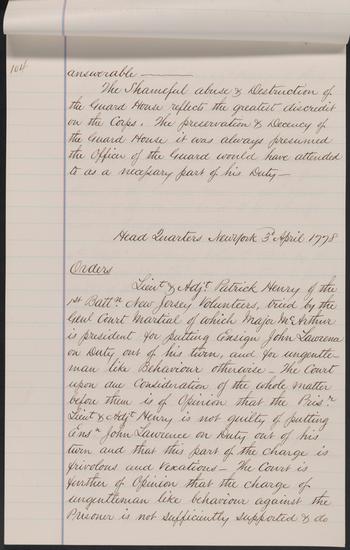 104
answerable ———
The Shameful abuse & Destruction of
the Guard House reflects the greatest discredit
on the Corps. The preservation & Decency of
the Guard House it was always presumed
the Officer of the Guard would have attended
to as a necessary part of his Duty —
Head Quarters New York 3d April 1778
Orders
Lieut & Adjt. Patrick Henry of the
1st Battn. New Jersey Volunteers, tried by the
Genl Court Martial of which Major McArthur
is president for putting Ensign John Lawrence
on Duty out of his turn, and for ungentle-
man like Behaviour otherwise — The Court
upon due Consideration of the whole matter
before them is of Opinion that the Prisr.
Lieut & Adjt Henry is not guilty of putting
Ensn John Lawrence on Duty out of his
turn and that this part of the charge is
frivolous and Vexatious — The Court is
further of Opinion that the charge of
ungentleman like behaviour against the
Prisoner is not sufficiently supported & do